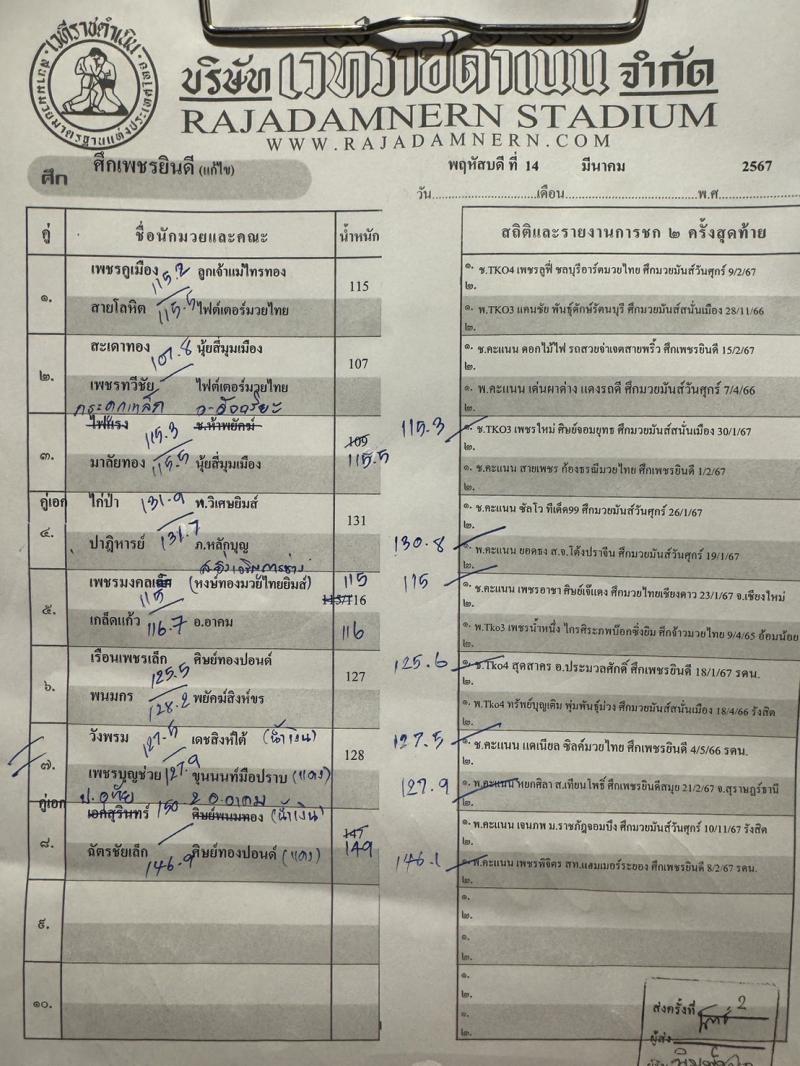 เวทีราชดำเนิน
สนามมวยมาตรฐานแห่งประเทศไทย
บริษัท เวทีราชดำเนิน จำกัด
RAJADAMNERN STADIUM
WWW.RAJADAMNERN.COM
ศึก ศึกเพชรยินดี (แก้ไข)
พฤหัสบดี ที่ 14 มีนาคม 2567
วัน เดือน พ.ศ.
คู่ ชื่อนักมวยและคณะ น้ำหนัก สถิติและรายงานการชก ๒ ครั้งสุดท้าย
๑. เพชรภูเมือง 115.2 ลูกเจ้าแม่ไทรทอง 115 ๑. ช.TKO4 เพชรลูฟี่ ชลบุรีอาร์ตมวยไทย ศึกมวยมันส์วันศุกร์ 9/2/67
๒.
สายโลหิต 115.5 ไฟต์เตอร์มวยไทย ๑. พ.TKO3 แคนชัย พันธุ์ดักษ์รัตนบุรี ศึกมวยมันส์สนั่นเมือง 28/11/66
๒.
๒. สะเดาทอง 107.8 นุ้ยสี่มุมเมือง 107 ๑. ช.คะแนน ดอกไม้ไฟ รถสวยจ่าเจตสายพริ้ว ศึกเพชรยินดี 15/2/67
๒.
เพชรทวีชัย ไฟต์เตอร์มวยไทย ๑. พ.คะแนน เด่นผาด่าง แดงรถดี ศึกมวยมันส์วันศุกร์ 7/4/66
๒.
กระดูกเหล็ก อ.อัจฉริยะ
๓. ไฟแรง 115.3 ช.ห้าพยัคฆ์ 109 115.5 115.3 ๑. ช.TKO3 เพชรใหม่ ศิษย์จอมยุทธ ศึกมวยมันส์สนั่นเมือง 30/1/67
๒.
มาลัยทอง 115.5 นุ้ยสี่มุมเมือง ๑. ช.คะแนน สายเพชร ก้องธรณีมวยไทย ศึกเพชรยินดี 1/2/67
๒.
คู่เอก ๔. ไก่ป่า 131.9 พ.วิเศษยิมส์ 131 ๑. ช.คะแนน ซัลโว ทีเด็ด99 ศึกมวยมันส์วันศุกร์ 26/1/67
๒.
ปาฏิหารย์ 131.7 ภ.หลักบุญ 130.8 ๑. พ.คะแนน ยอดธง ส.จ.โต้งปราจีน ศึกมวยมันส์วันศุกร์ 19/1/67
๒.
๕. เพชรมงคล 115 (หงษ์ทองมวยไทยยิมส์) 115 116 115 ๑. ช.คะแนน เพชรอาชา ศิษย์เจ๊แดง ศึกมวยไทยเชียงดาว 23/1/67 จ.เชียงใหม่
๒.
เกล็ดแก้ว 116.7 อ.อาคม 116 ๑. พ.Tko3 เพชรน้ำหนึ่ง ไกรศิระภพบ๊อกซิ่งยิม ศึกจ้าวมวยไทย 9/4/65 อ้อมน้อย
๒.
๖. เรือนเพชรเล็ก 125.5 ศิษย์ทองปอนด์ 127 125.6 ๑. ช.Tko4 สุดสาคร อ.ประมวลศักดิ์ ศึกเพชรยินดี 18/1/67 รดน.
๒.
พนมกร 128.2 พยัคฆ์สิงห์ขร ๑. พ.Tko4 ทรัพย์บุญเติม พุ่มพันธุ์ม่วง ศึกมวยมันส์สนั่นเมือง 18/4/66 รังสิต
๒.
๗. วังพรม 127.5 เดชสิงห์ใต้ (น้ำเงิน) 128 127.5 ๑. ช.คะแนน แดเนียล ซิลค์มวยไทย ศึกเพชรยินดี 4/5/66 รดน.
๒.
เพชรบุญช่วย 127.9 ขุนนนท์มือปราบ (แดง) 127.9 ๑. พ.คะแนน หยกศิลา ส.เทียนโพธิ์ ศึกเพชรยินดีสมุย 21/2/67 จ.สุราษฎร์ธานี
๒.
ป.อุทัย อ.อาคม
คู่เอก ๘. เอกสุรินทร์ 150 ศิษย์พนมทอง (น้ำเงิน) 147 149 ๑. พ.คะแนน เจนภพ ม.ราชภัฎจอมบึง ศึกมวยมันส์วันศุกร์ 10/11/67 รังสิต
๒.
ฉัตรชัยเล็ก 146.9 ศิษย์ทองปอนด์ (แดง) 146.1 ๑. พ.คะแนน เพชรพิจิตร สท.แฮมเมอร์ระยอง ศึกเพชรยินดี 8/2/67 รดน.
๒.
๙. ๑.
๒.
๑.
๒.
๑๐. ๑.
๒.
๑.
๒.
ส่งครั้งที่ 2
ผู้ส่ง